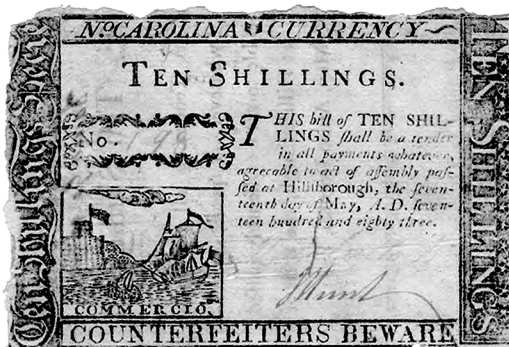 No CAROLINA CURRENCY
TEN SHILLINGS.
No. 198
THIS bill of TEN SHIL-
LINGS ſhall be a tender
in all payments whatever,
agreeable to act of aſſembly paſ-
ſed at Hillſborough, the ſeven-
teenth day of May, A. D. ſeven-
teen hundred and eighty three.
COMMERCIO.
COUNTERFEITERS BEWARE
TEN SHILLINGS